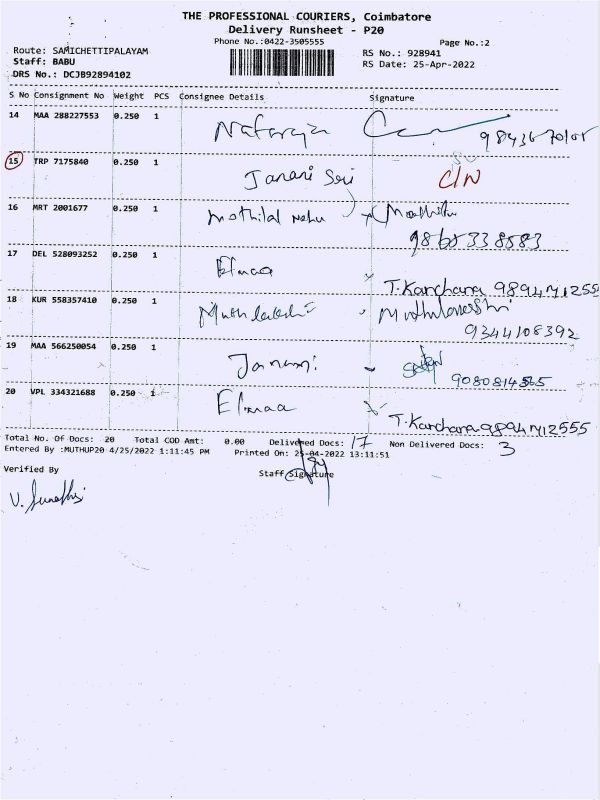 THE PROFESSIONAL COURIERS, Coimbatore
Delivery Runsheet - P20
Phone No.:0422-3505555
Page No.:2
Route: SAMICHETTIPALAYAM
RS No.: 928941
Staff: BABU
RS Date: 25-Apr-2022
DRS No.: DCJB92894102
S No Consignment No Weight PCS Consignee Details Signature
14 MAA 288227553 0.250 1 Nataraja
15 TRP 7175840 0.250 1 Janani Sri C/N
16 MRT 2001677 0.250 1 mothilal nehu
17 DEL 528093252 0.250 1 Elmaa
T.Kanchana
18 KUR 558357410 0.250 1
9344108392
19 MAA 566250054 0.250 1
9080814565
20 VPL 334321688 0.250 1 Elmaa
T.Kanchana 9894712555
Total No. Of Docs: 20 Total COD Amt: 0.00 Delivered Docs: 17 Non Delivered Docs: 3
Entered By :MUTHUP20 4/25/2022 1:11:45 PM Printed On: 25-04-2022 13:11:51
Verified By Staff Signature